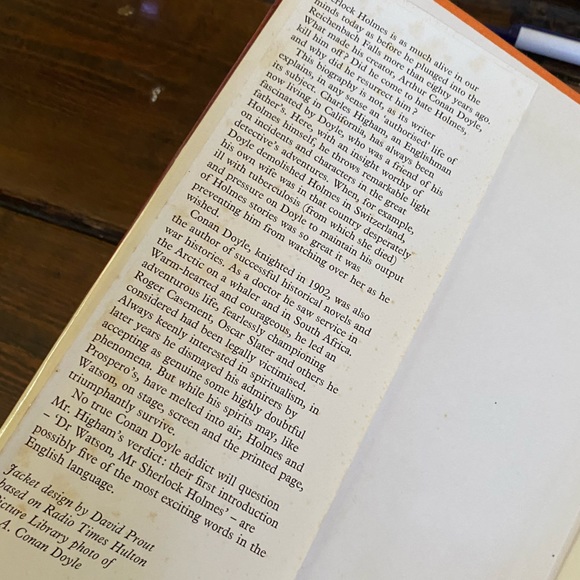 rlock Holmes is as much alive in our
minds today as before he plunged into the
Reichenbach Falls more than eighty years ago
What made his creator, Arthur Conan Doyle,
kill him off? Did he come to hate Holmes,
and why did he resurrect him?
This biography is not, as its writer
explains, in any sense an 'authorised' life of
its subject. Charles Higham, an Englishman
now living in California, has always been
fascinated by Doyle, who was a friend of his
father's. Here, with an insight worthy of
Holmes himself, he throws remarkable light
on incidents and characters in the great
detective's adventures. When, for example,
Doyle demolished Holmes in Switzerland,
his own wife was in that country desperately
ill with tuberculosis (from which she died)
and pressure on Doyle to maintain his output
of Holmes stories was so great it was
preventing him from watching over her as he
wished.
Conan Doyle, knighted in 1902, was also
the author of successful historical novels and
war histories. As a doctor he saw service in
the Arctic on a whaler and in South Africa.
Warm-hearted and courageous, he led an
adventurous life, fearlessly championing
Roger Casement, Oscar Slater and others he
considered had been legally victimised.
Always keenly interested in spiritualism, in
later years he dismayed his admirers by
accepting as genuine some highly doubtful
phenomena. But while his spirits may, like
Prospero's, have melted into air, Holmes and
Watson, on stage, screen and the printed page,
triumphantly survive.
No true Conan Doyle addict will question
Mr. Higham's verdict: their first introduction
– 'Dr Watson, Mr Sherlock Holmes' – are
possibly five of the most exciting words in the
English language.
Jacket design by David Prout
based on Radio Times Hulton
Picture Library photo of
A. Conan Doyle